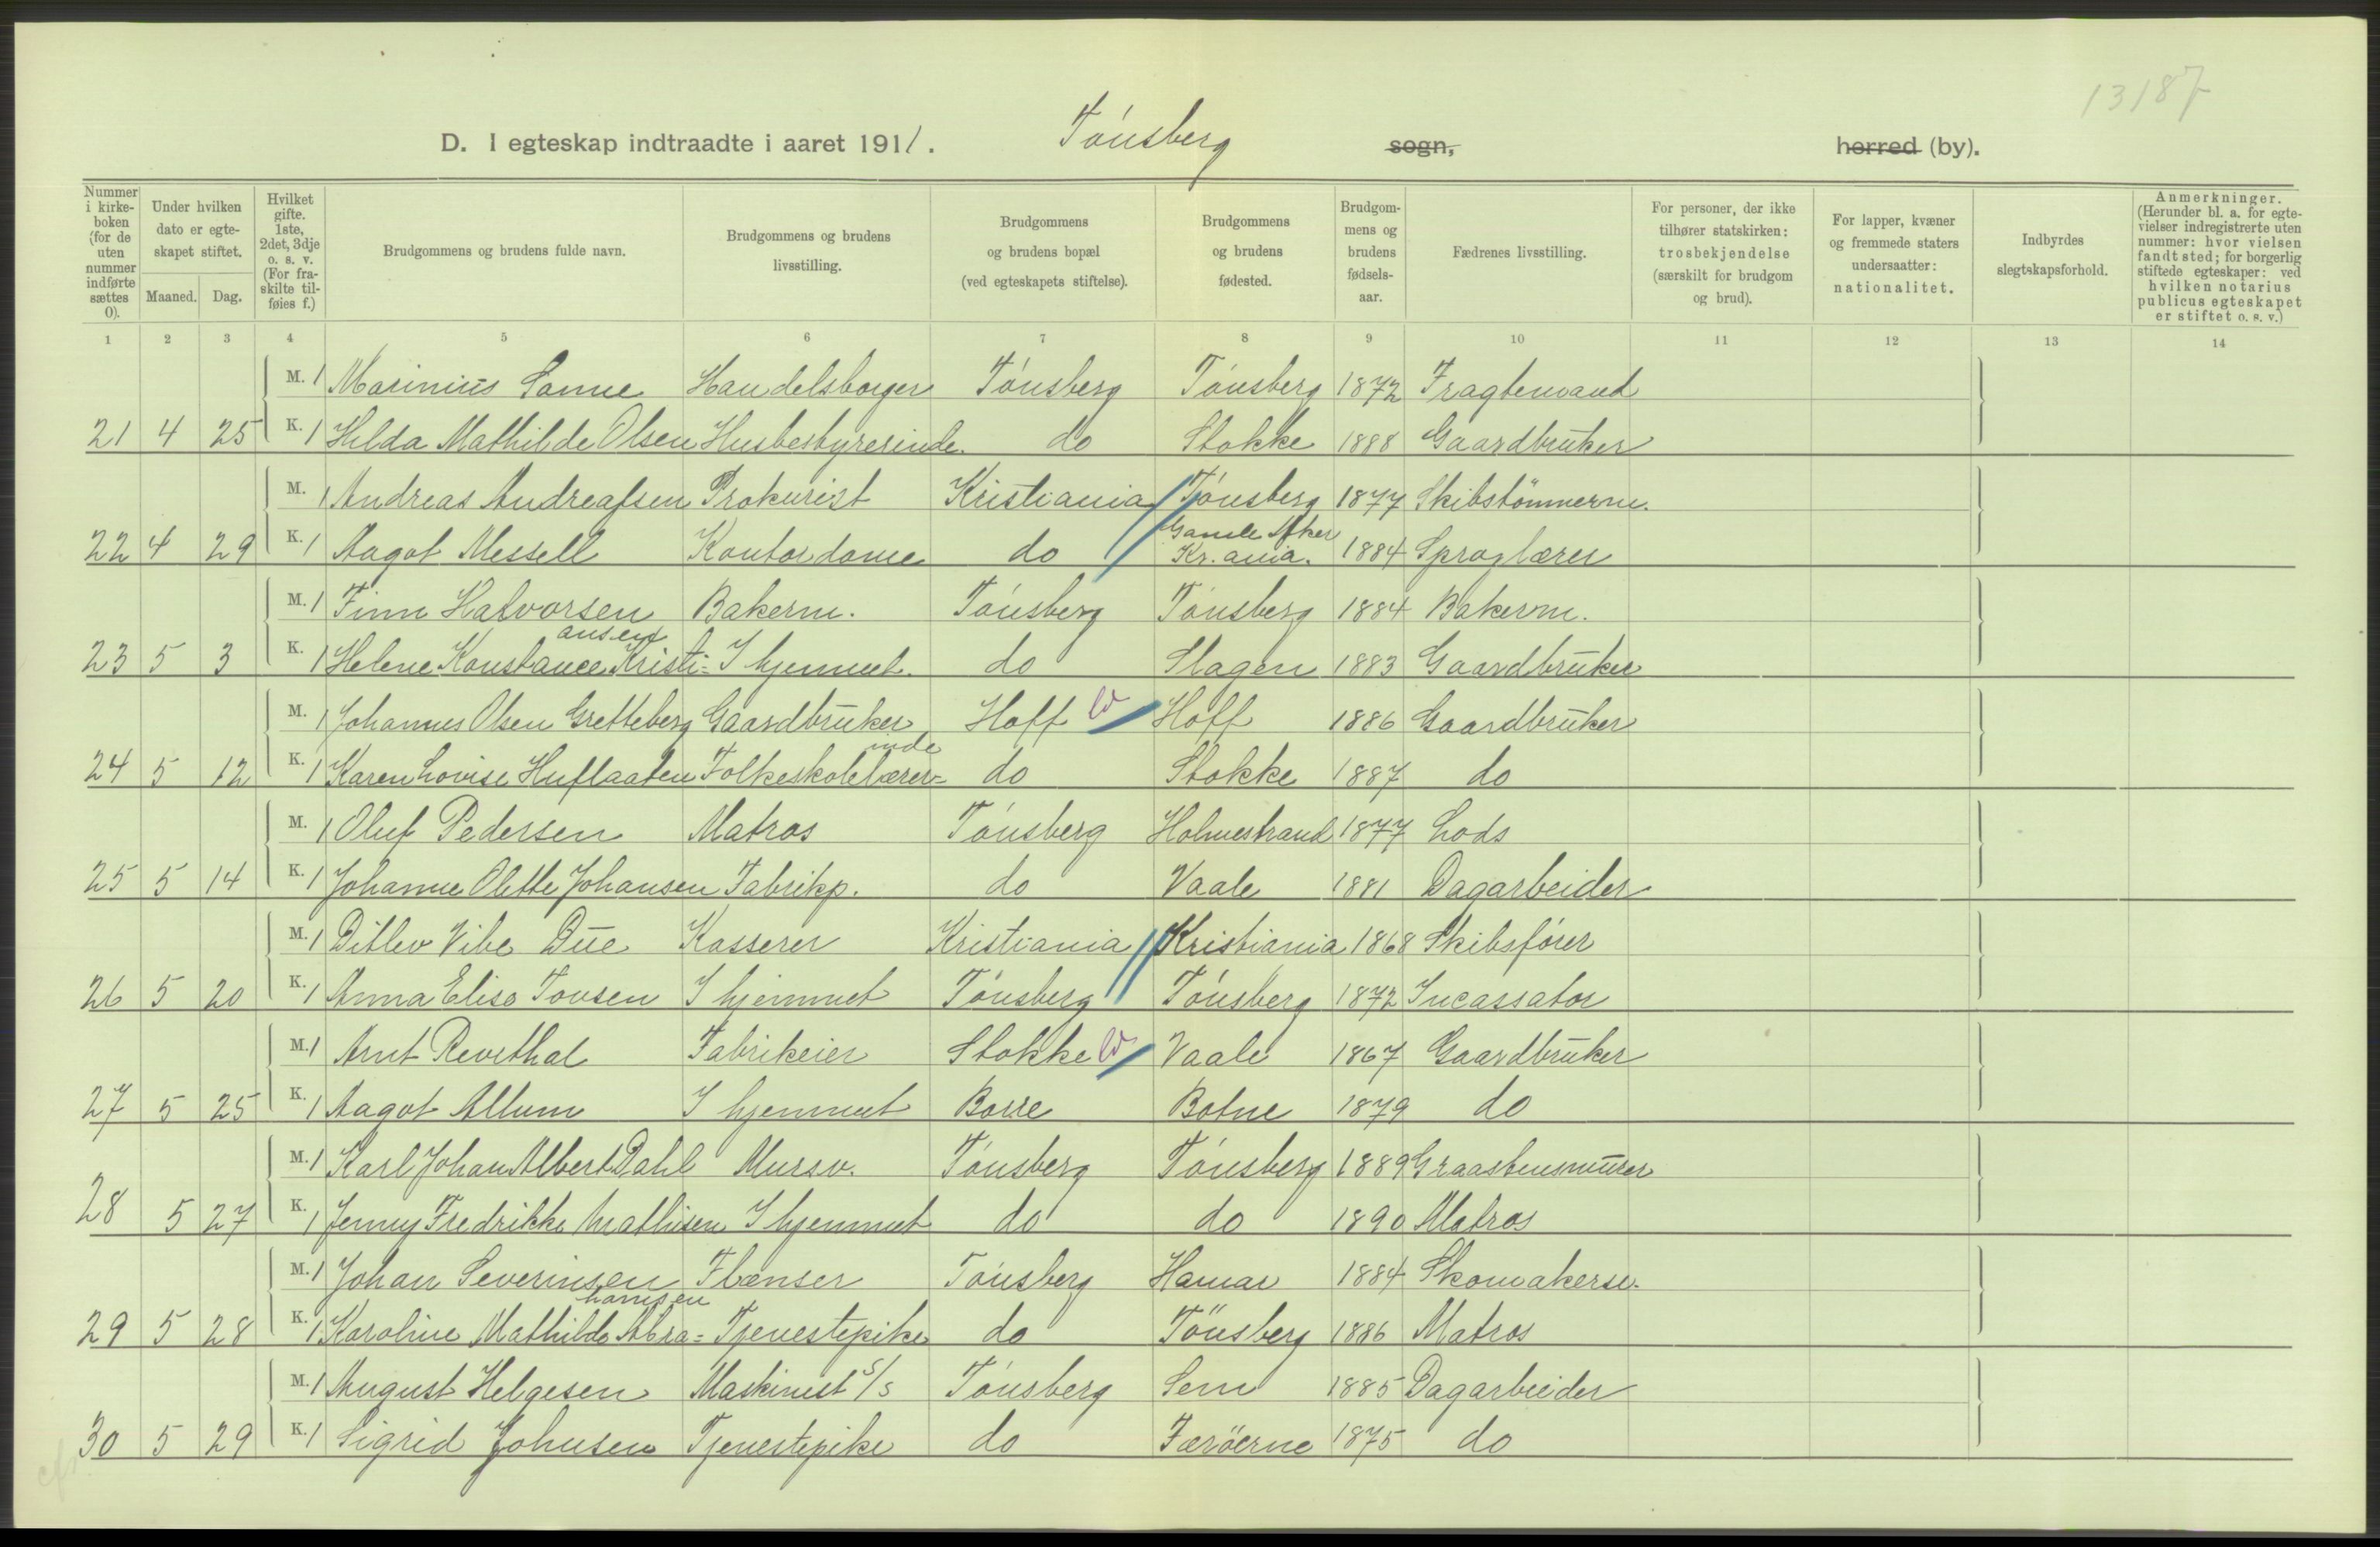 13187
D. I egteskap indtraadte i aaret 1911. Tönsberg sogn, herred (by).
Nummer i kirke- boken (for de uten nummer indførte sættes 0).
Under hvilken dato er egte- skapet stiftet.
Maaned. Dag.
Hvilket gifte. 1ste, 2det, 3dje o. s. v. (For fra- skilte til- føies f.)
Brudgommens og brudens fulde navn.
Brudgommens og brudens livsstilling.
Brudgommens og brudens bopæl (ved egteskapets stiftelse).
Brudgommens og brudens fødested.
Brudgom- mens og brudens fødsels- aar.
Fædrenes livsstilling.
For personer, der ikke tilhører statskirken: trosbekjendelse (særskilt for brudgom og brud).
For lapper, kvæner og fremmede staters undersaatter: nationalitet.
Indbyrdes slegtskapsforhold.
Anmerkninger. (Herunder bl. a. for egte- vielser indregistrerte uten nummer: hvor vielsen fandt sted; for borgerlig stiftede egteskaper: ved hvilken notarius publicus egteskapet er stiftet o. s. v.)
1 2 3 4 5 6 7 8 9 10 11 12 13 14
M. 1 Marinius Sanne Handelsborger Tönsberg Tönsberg 1872 Fragtemand
21 4 25 K. 1 Hilda Mathilde Olsen Husbestyrerinde. do Stokke 1888 Gaardbruker
M. 1 Andreas Andreassen Prokurist Kristiania Tönsberg 1877 Skibstömmerm.
22 4 29 K. 1 Aagot Messell Kontordame do Gamle Aker Kr.ania. 1884 Sproglærer
M. 1 Finn Halvorsen Bakerm. Tönsberg Tönsberg 1884 Bakerm.
23 5 3 K. 1 Helene Konstance Kristi= ansen I hjemmet. do Slagen 1883 Gaardbruker
M. 1 Johannes Olsen Gretteberg Gaardbruker Hoff Hoff 1886 Gaardbruker
24 5 12 K. 1 Karen Lovise Huflaaten Folkeskolelærer= inde do Stokke 1887 do
M. 1 Oluf Pedersen Matros Tönsberg Holmestrand 1877 Lods
25 5 14 K. 1 Johanne Olette Johansen Fabrikp. do Vaale 1881 Dagarbeider
M. 1 Ditlev Vibe Due Kasserer Kristiania Kristiania 1868 Skibsförer
26 5 20 K. 1 Anna Elise Tousen I hjemmet Tönsberg Tönsberg 1872 Incassator
M. 1 Arnt Revethal Fabrikeier Stokke Vaale 1867 Gaardbruker
27 5 25 K. 1 Aagot Allum I hjemmet Borre Botne 1879 do
M. 1 Karl Johan Albert Dahl Mursv. Tönsberg Tönsberg 1889 Graastensmurer
28 5 27 K. 1 Jenny Fredrikke Mathisen I hjemmet do do 1890 Matros
M. 1 Johan Severinsen Flænser Tönsberg Hamar 1884 Skomakersv.
29 5 28 K. 1 Karoline Mathilde Abra= hamsen Tjenestepike do Tönsberg 1886 Matros
M. 1 August Helgesen Maskinist S/S Tönsberg Sem 1885 Dagarbeider
30 5 29 K. 1 Sigrid Johnsen Tjenestepike do Færöerne 1875 do